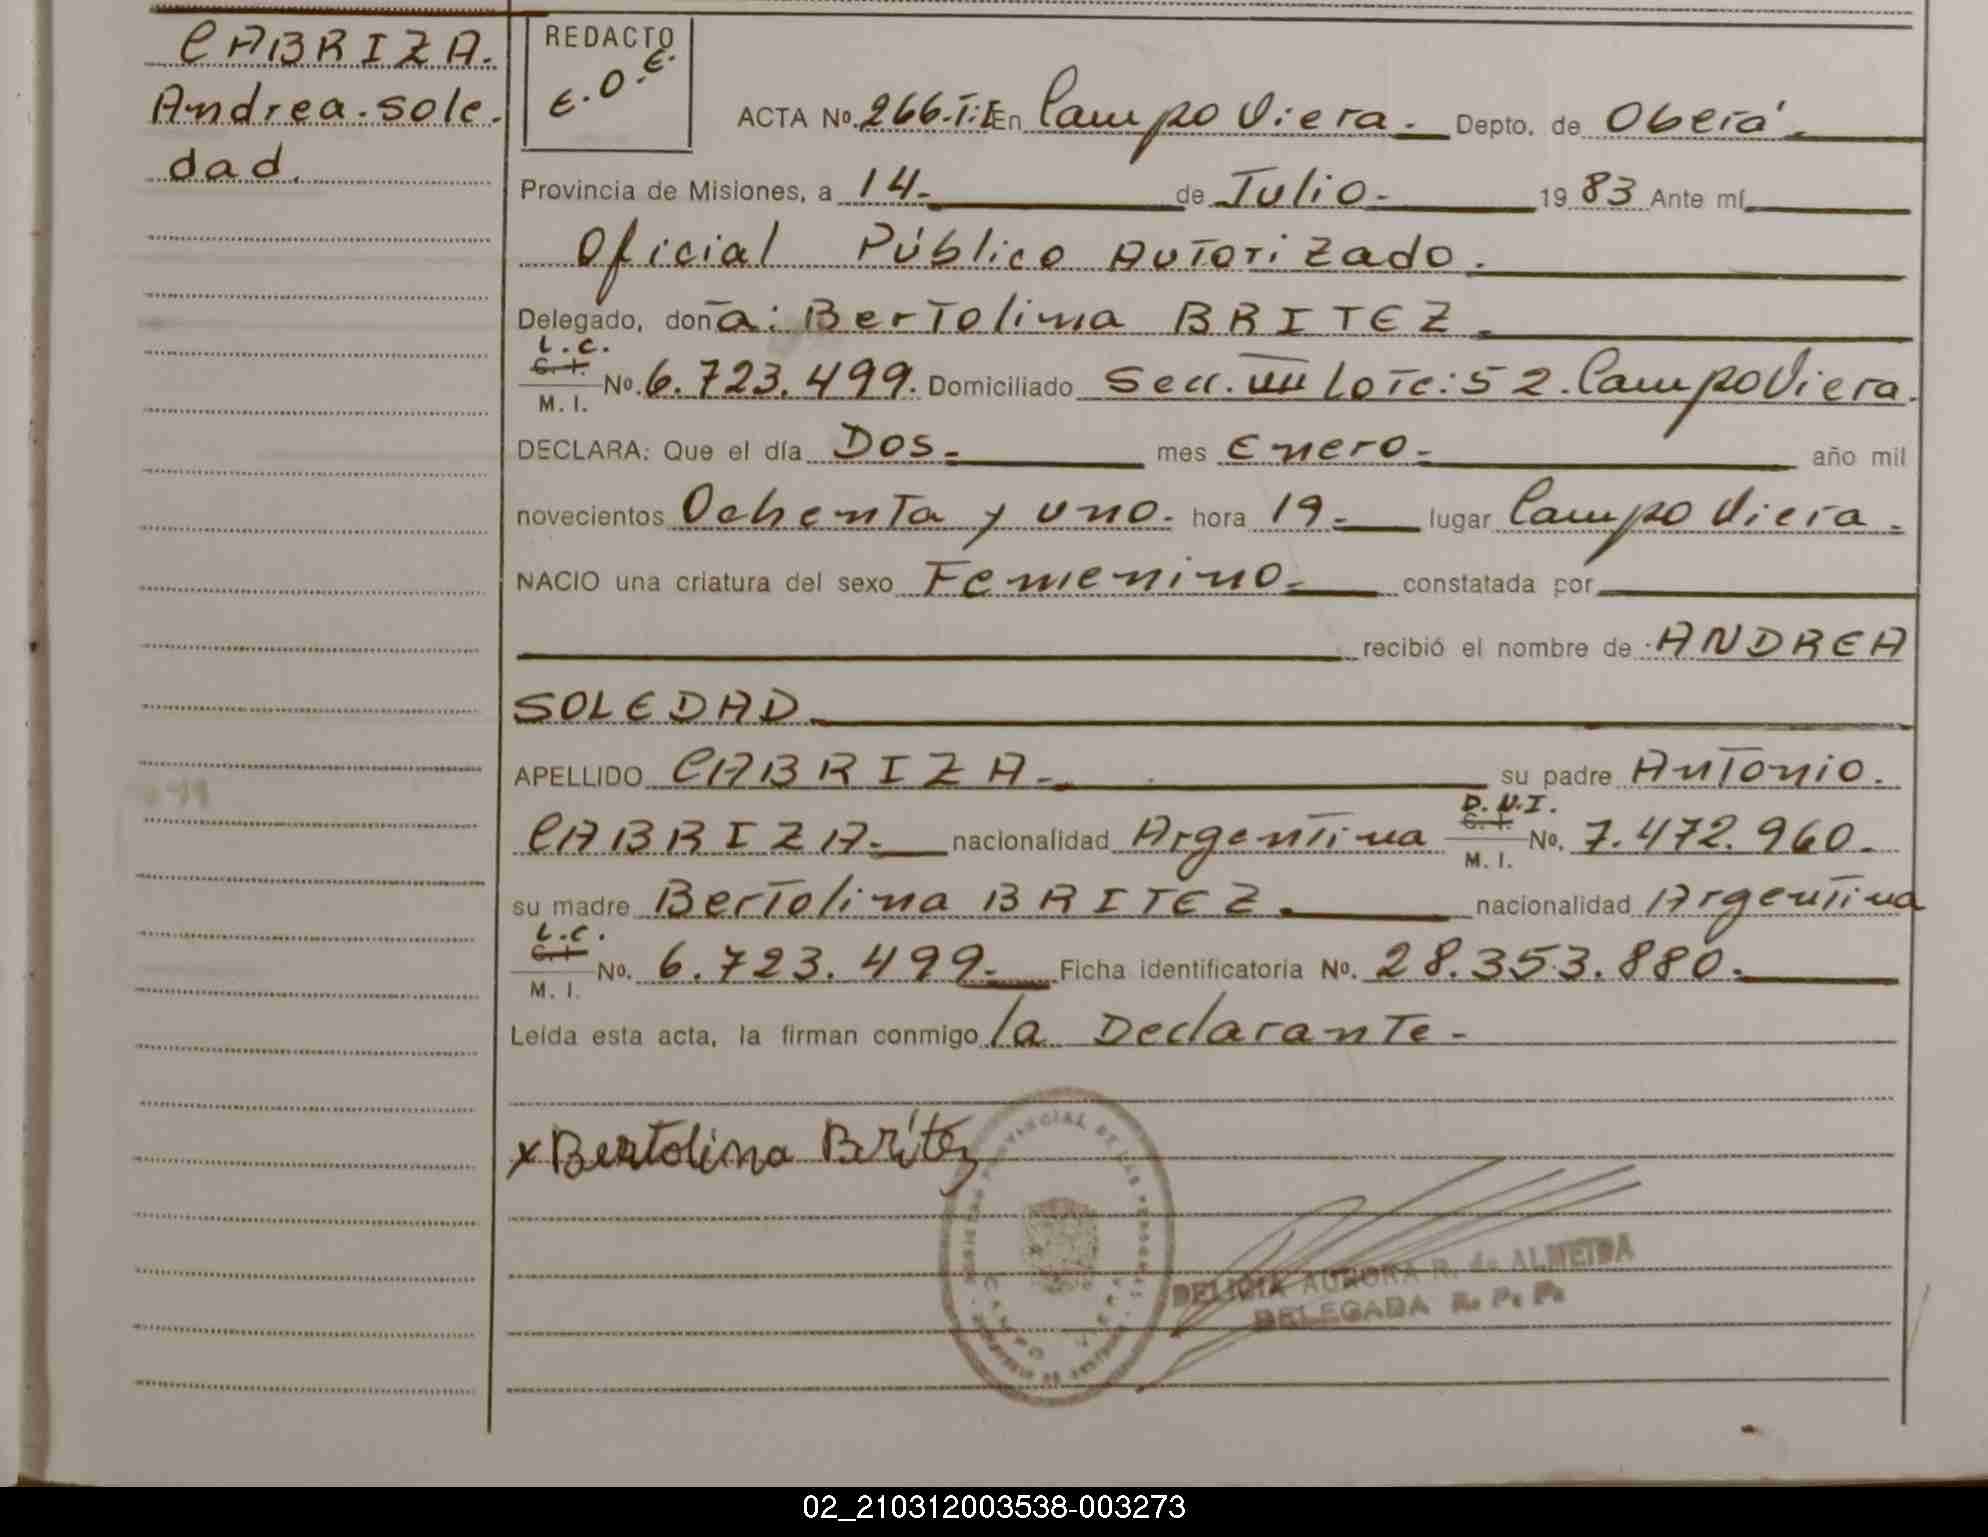 CABRIZA.
Andrea-sole-
dad.
REDACTO
E.O.E.
ACTA Nº. 266-T:I En Campo Viera. Depto. de Oberá.
Provincia de Misiones, a 14- de Julio- 19 83 Ante mí
Oficial Público Autorizado.
Delegado, doña: Bertolina BRITEZ.
L.C.
C. I.
M. I.
Nº. 6.723.499. Domiciliado Secc. VIII Lote: 52. Campo Viera.
DECLARA: Que el día Dos- mes Enero- año mil
novecientos Ochenta y uno. hora 19- lugar Campo Viera.
NACIO una criatura del sexo Femenino- constatada por
recibió el nombre de ANDREA
SOLEDAD
APELLIDO CABRIZA- su padre Antonio.
CABRIZA- nacionalidad Argentina D.N.I. C. I. M. I. Nº. 7.472.960-
su madre Bertolina BRITEZ. nacionalidad Argentina
L.C.
C. I.
M. I.
Nº. 6.723.499- Ficha identificatoria Nº. 28.353.880-
Leída esta acta, la firman conmigo la Declarante-
x Bertolina Britez
PROVINCIAL DE LAS PERSONAS
CAMPO VIERA
DELICIA AURORA R. de ALMEIDA
DELEGADA R. P. P.
02_210312003538-003273